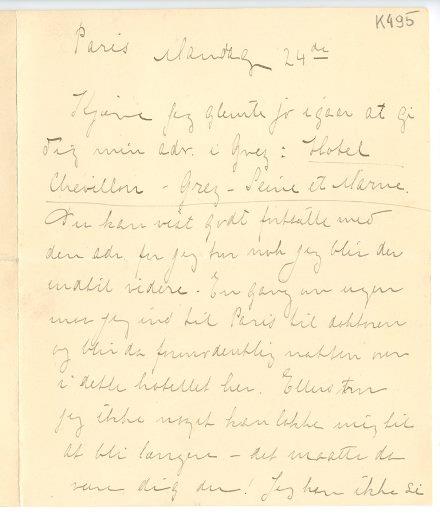 K495
Paris Mandag 24de
Kjære Jeg glemte jo igaar at gi
dig min adr. i Grez: Hotel
Chevillon - Grez - Seine et Marne.
Du kan vist godt fortsætte med
den adr, for jeg tror nok jeg blir der
indtil videre. En gang om ugen
maa jeg ind til Paris til doktoren
og blir da formodentlig natten over
i dette hotellet her. Ellers tror
jeg ikke noget kan lokke mig til
at bli længere - det maatte da
være dig da! Jeg kan ikke si